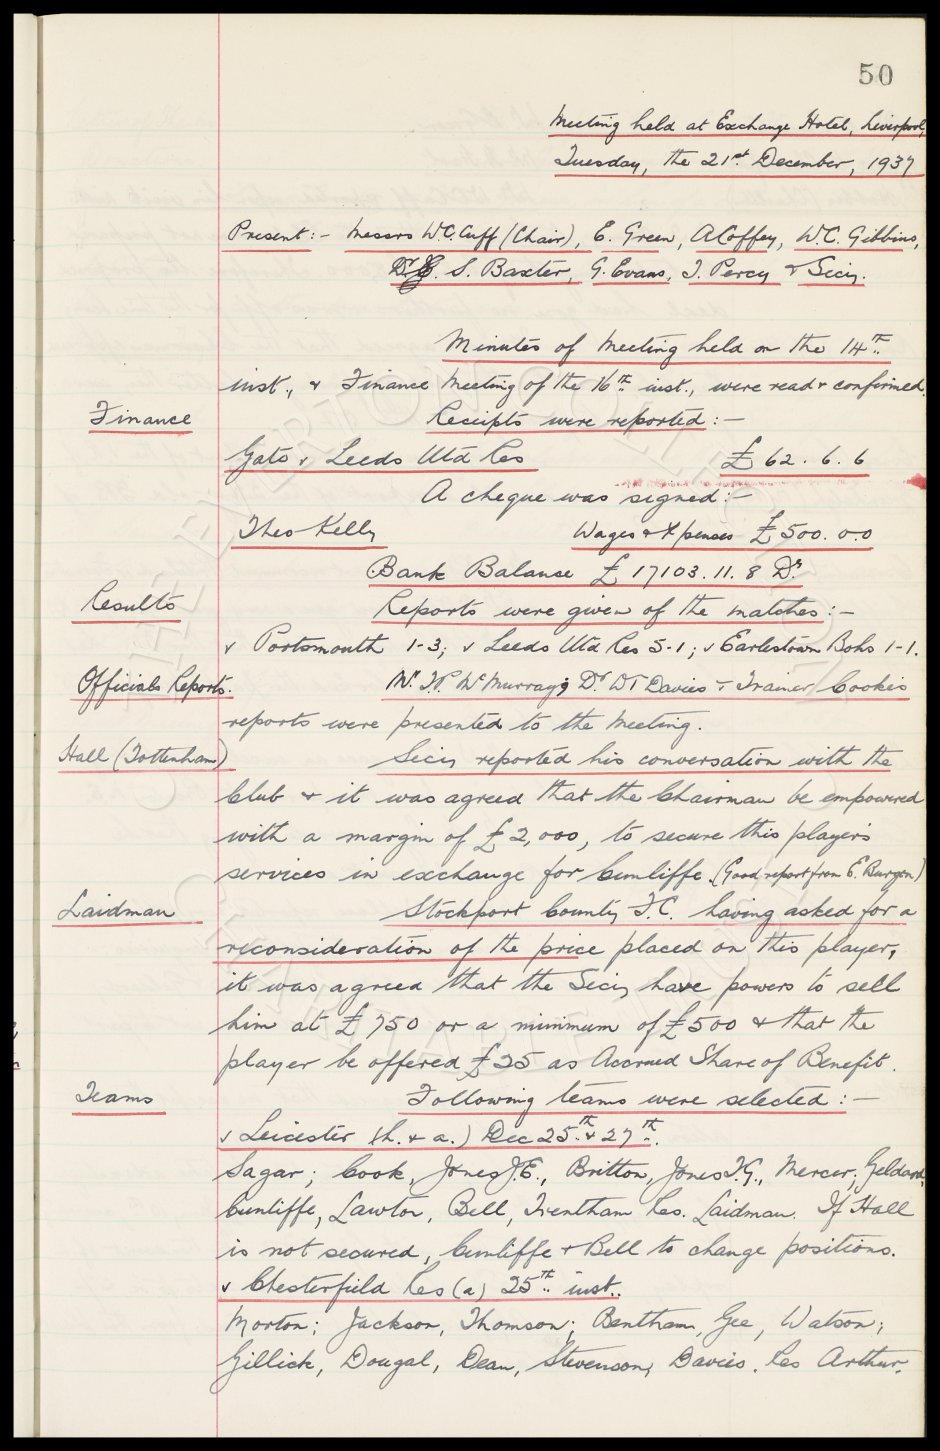 50
Meeting held at Exchange Hotel, Liverpool,
Tuesday, the 21st December, 1937
Present:- Messrs W.C. Cuff (Chair), E. Green, A Coffey, W.C. Gibbins,
Dr S. Baxter, G. Evans, T. Percy & Secy.
Minutes of Meeting held on the 14th
inst., & Finance Meeting of the 16th inst., were read & confirmed.
Finance
Receipts were reported:-
Gate v Leeds Utd Res £62.6.6
A cheque was signed:-
Theo Kelly Wages & Xpenses £500.0.0
Bank Balance £17103.11.8 Dr
Results
Reports were given of the matches:-
v Portsmouth 1-3; v Leeds Utd Res 5-1; v Earlestown Bohs 1-1.
Officials Reports.
Mr. J.P. McMurray's Dr. DT Davies & Trainer Cooke's
reports were presented to the Meeting.
Hall (Tottenham)
Secy reported his conversation with the
Club & it was agreed that the Chairman be empowered
with a margin of £2,000, to secure this player's
services in exchange for Cunliffe. (Good report from E. Burgon)
Laidman
Stockport County F.C. having asked for a
reconsideration of the price placed on this player,
it was agreed that the Secy have powers to sell
him at £750 or a minimum of £500 & that the
player be offered £25 as Accrued Share of Benefit.
Teams
Following teams were selected:-
v Leicester (h. & a.) Dec 25th & 27th.
Sagar; Cook, Jones J.E., Britton, Jones T.G., Mercer; Geldard,
Cunliffe, Lawton, Bell, Trentham Res. Laidman. If Hall
is not secured, Cunliffe & Bell to change positions.
v Chesterfield Res (a) 25th inst..
Morton; Jackson, Thomson; Bentham, Gee, Watson;
Gillick, Dougal, Dean, Stevenson, Davies. Res Arthur.